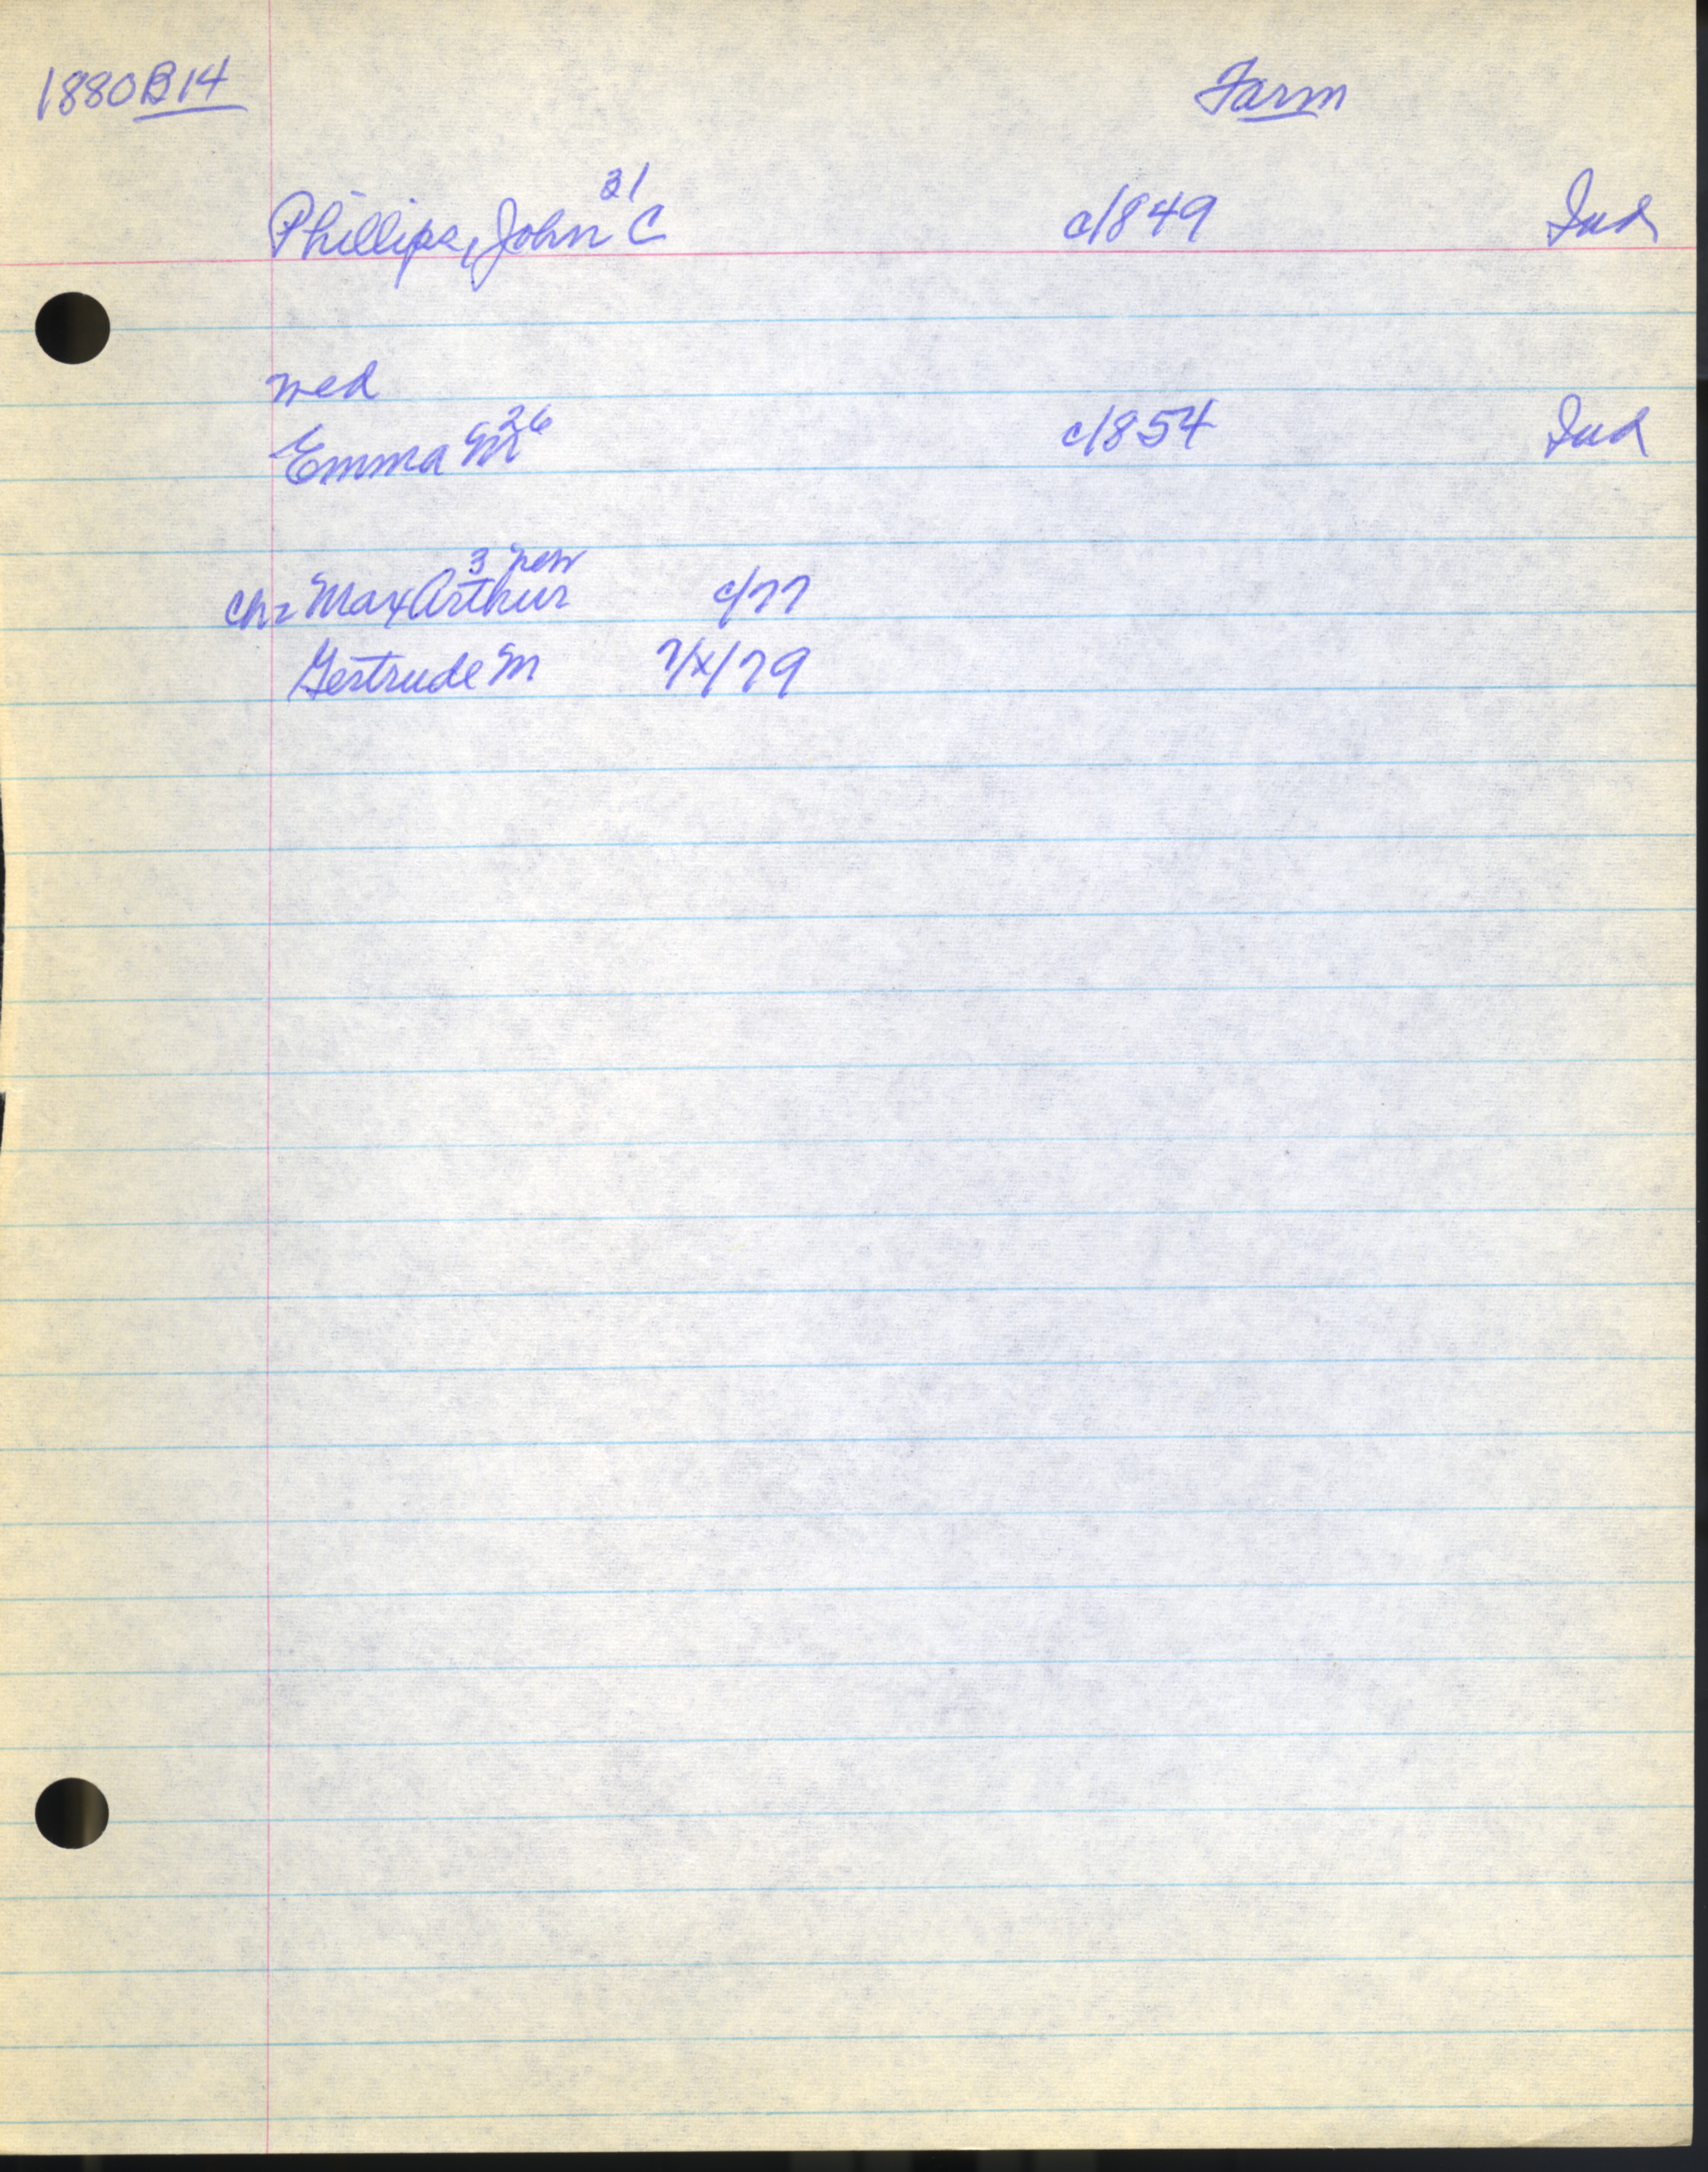 1880B14 Farm
31
Phillips, John C c1849 Ind
med
26
Emma M c1854 Ind
3
ch = Max Arthur c/77
Gertrude M 7/x/79